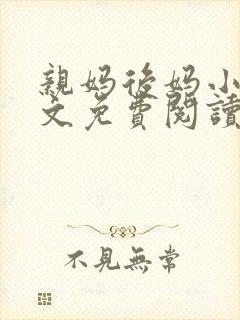 親媽後媽小
文免費閱讀
不見無常